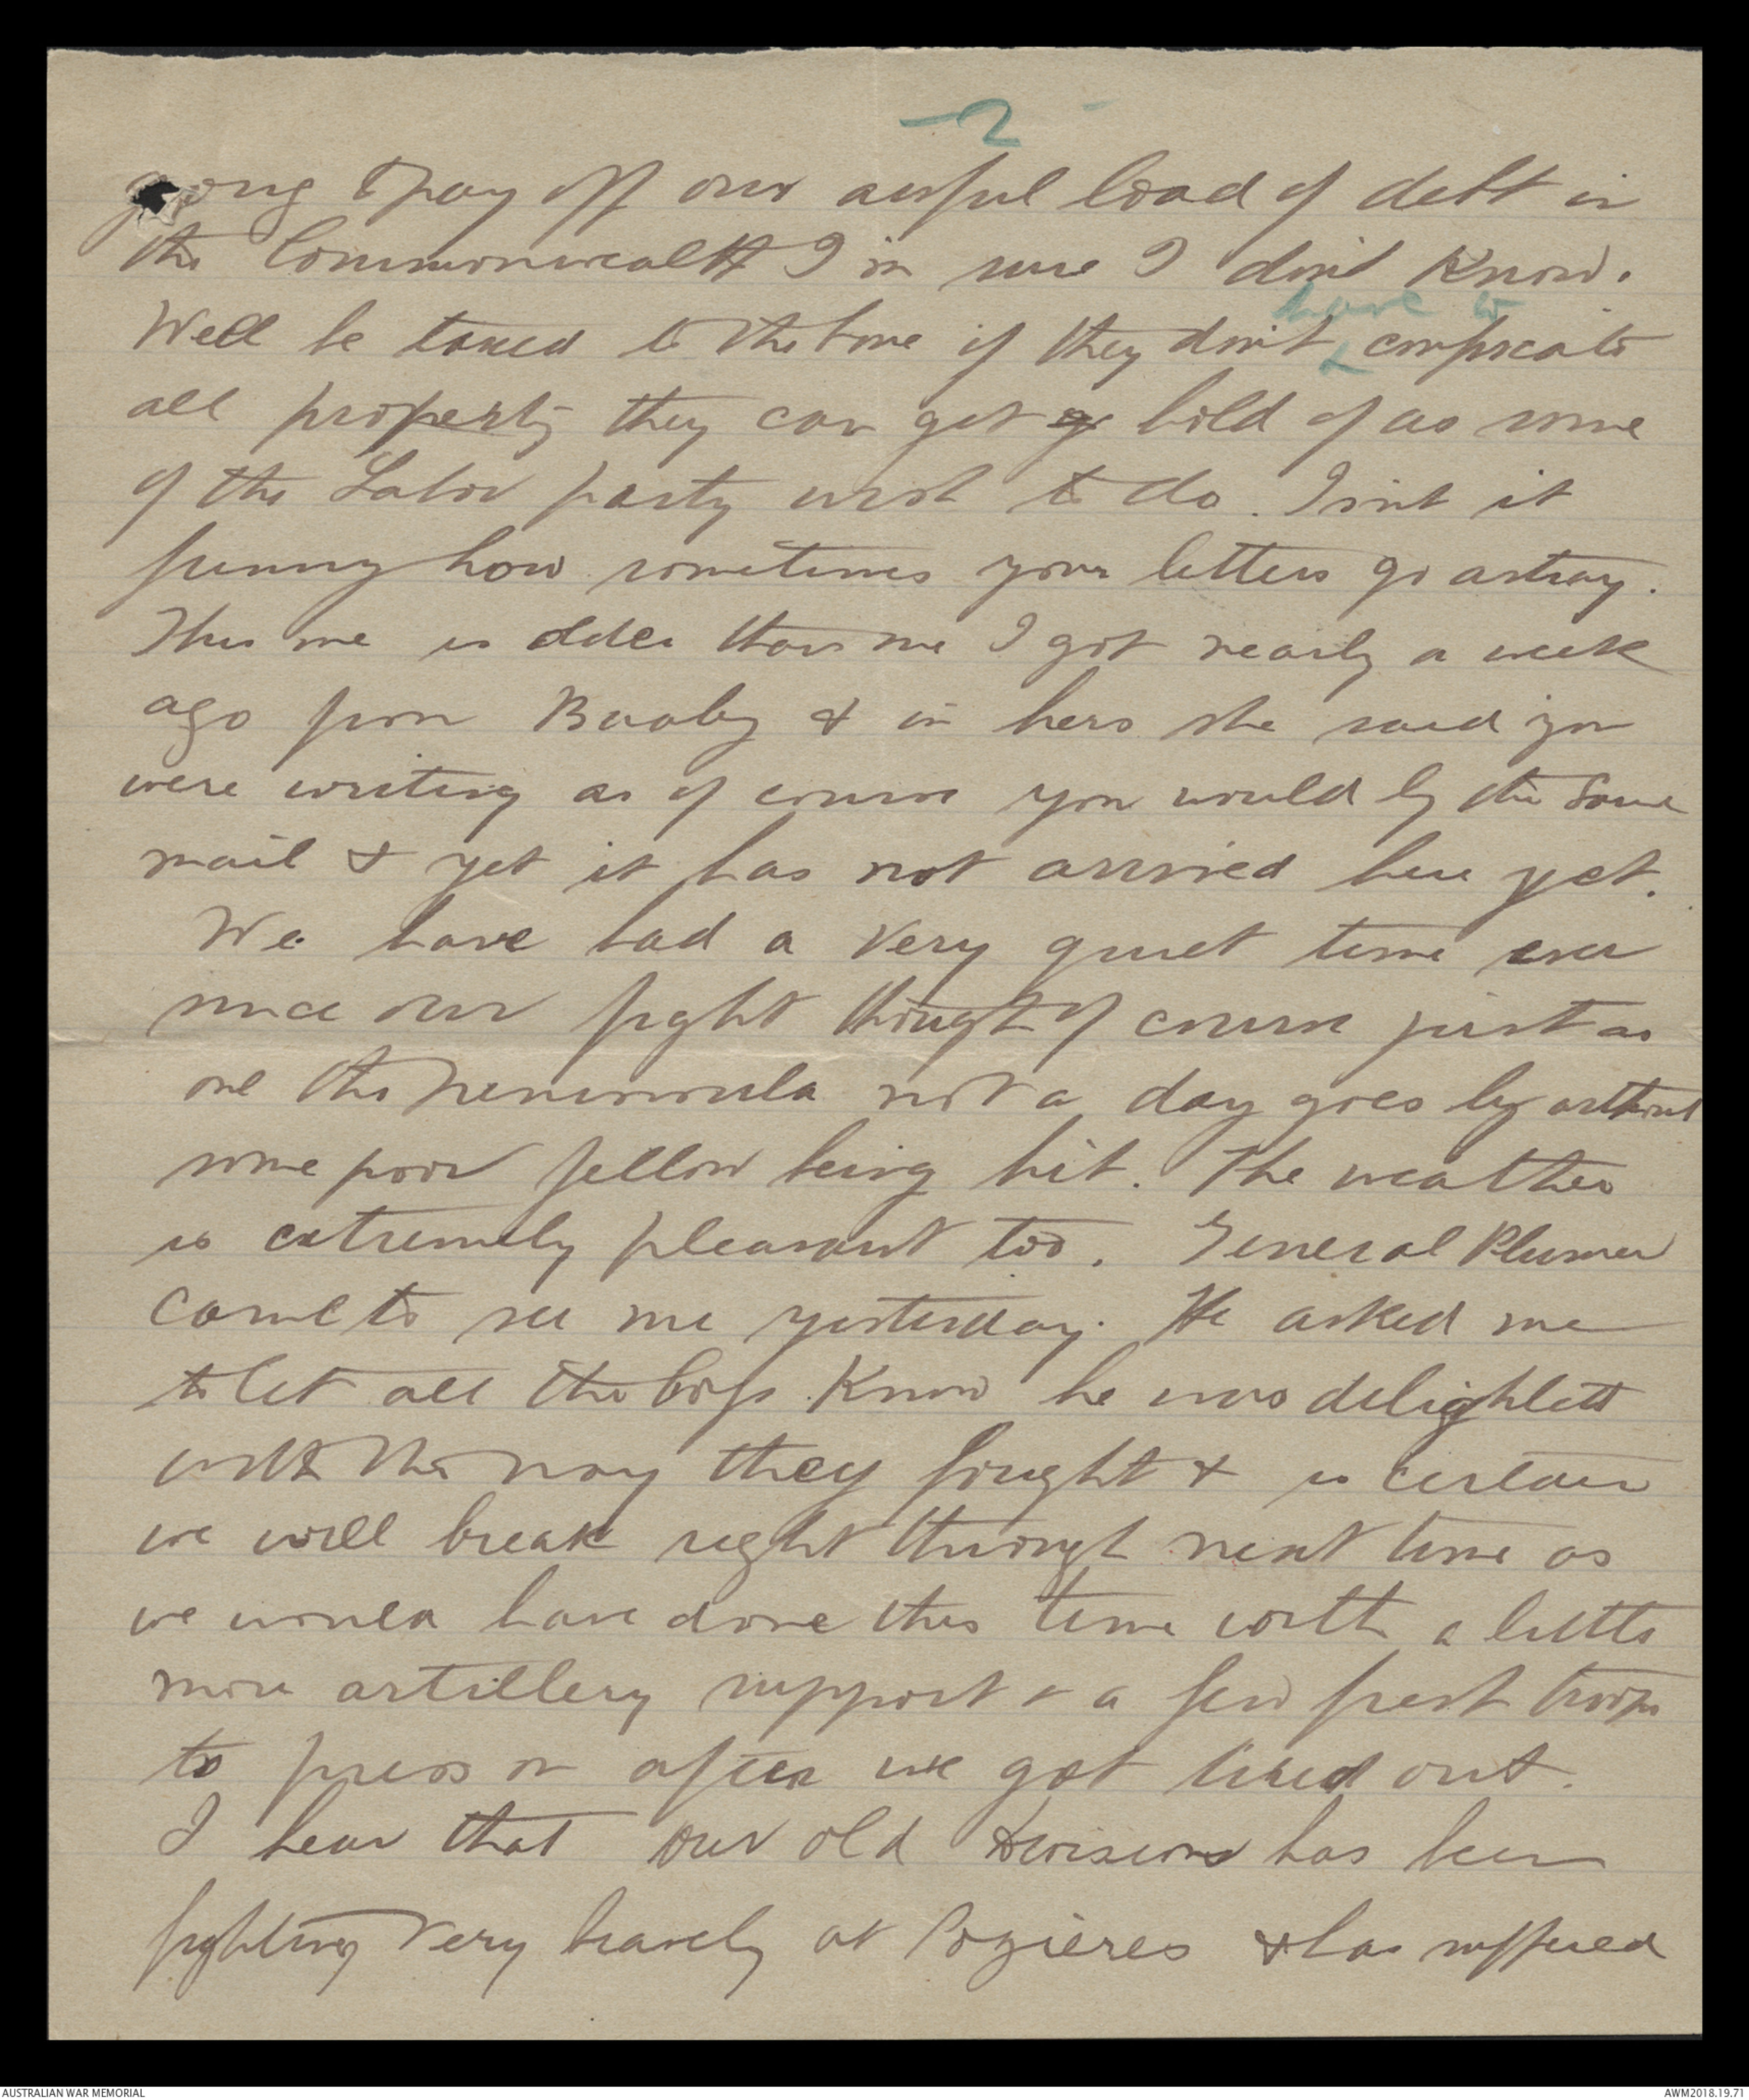 -2-
going to pay off our awful load of debt in
the Commonwealth I'm sure I don't know.
have to
We'll be taxed to the bone if they don't confiscate
all property they can get hold of as some
of the Labor party wish to do. Isn't it
funny how sometimes your letters go astray.
This one is older than one I got nearly a week
ago from Baaby & in hers she said you
were writing as of course you would by the same
mail & yet it has not arrived here yet.
We have had a very quiet time ever
since our fight though of course just as
on the Peninsula not a day goes by without
some poor fellow being hit. The weather
is extremely pleasant too. General Plumer
came to see me yesterday. He asked me
to let all the boys know he was delighted
with the way they fought & is certain
we will break right through next time as
we would have done this time with a little
more artillery support & a few fresh troops
to press on after we got tired out.
I hear that our old Division has been
fighting very bravely at Pozières & has suffered
AUSTRALIAN WAR MEMORIAL
AWM2018.19.71